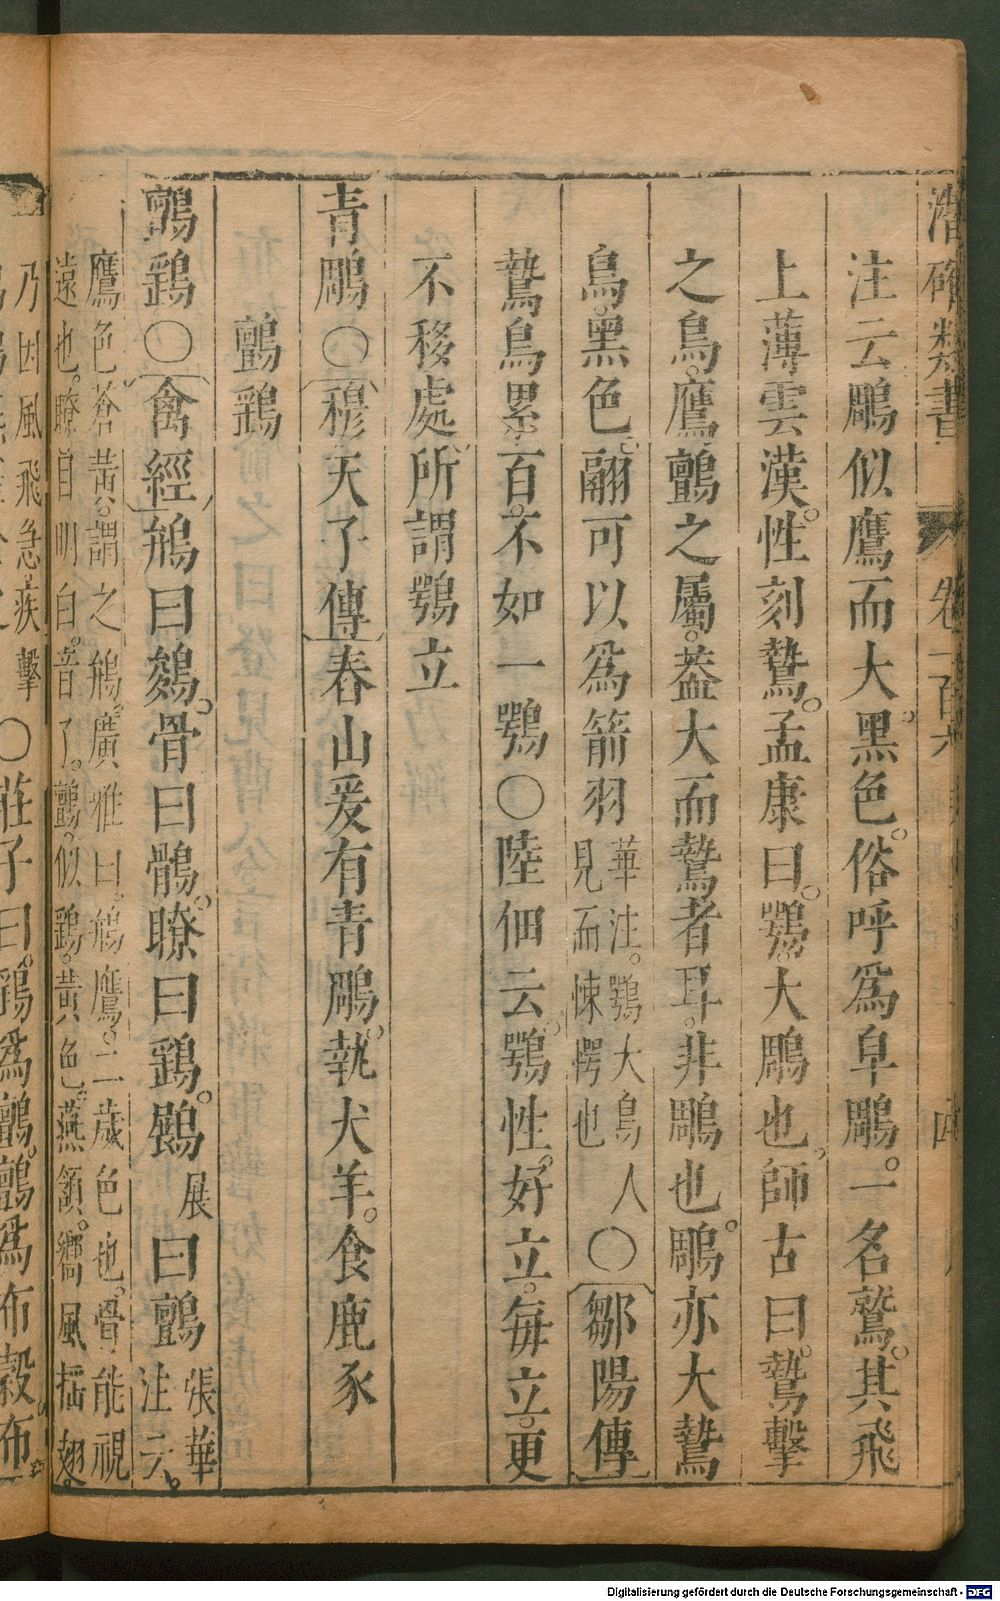 潛確類書 卷一百六
注云鵰似鷹而大黑色。俗呼爲皁鵰。一名鷲。其飛
上薄雲漢。性刻鷙。孟康曰。鶚。大鵰也。師古曰。鷙擊
之鳥。鷹鸇之屬。葢大而鷙者耳。非鵰也。鵰亦大鷙
鳥。黑色。翮可以爲箭羽
華注。鶚大鳥人
見而悚愕也
○鄒陽傳
鷙鳥累百。不如一鶚○陸佃云。鶚性。好立。每立。更
不移處。所謂鶚立
青鵰○穆天子傳春山爰有青鵰。執犬羊。食鹿豕
鸇鷂
鸇鷂○禽經鵃曰鷂。骨曰鶻。瞭曰鷂。鷐展曰鸇
張華
注云。
鷹色蒼黃。謂之鵃。廣雅曰。鵃鷹。二歲色也。骨能視
遠也。瞭目明白。音了。鸇。似鷂。黃色。燕頷。嚮風搖翅。
乃因風飛急。疾擊
○莊子曰。鷂爲鸇。鸇爲布穀。布
Digitalisierung gefördert durch die Deutsche Forschungsgemeinschaft - DFG